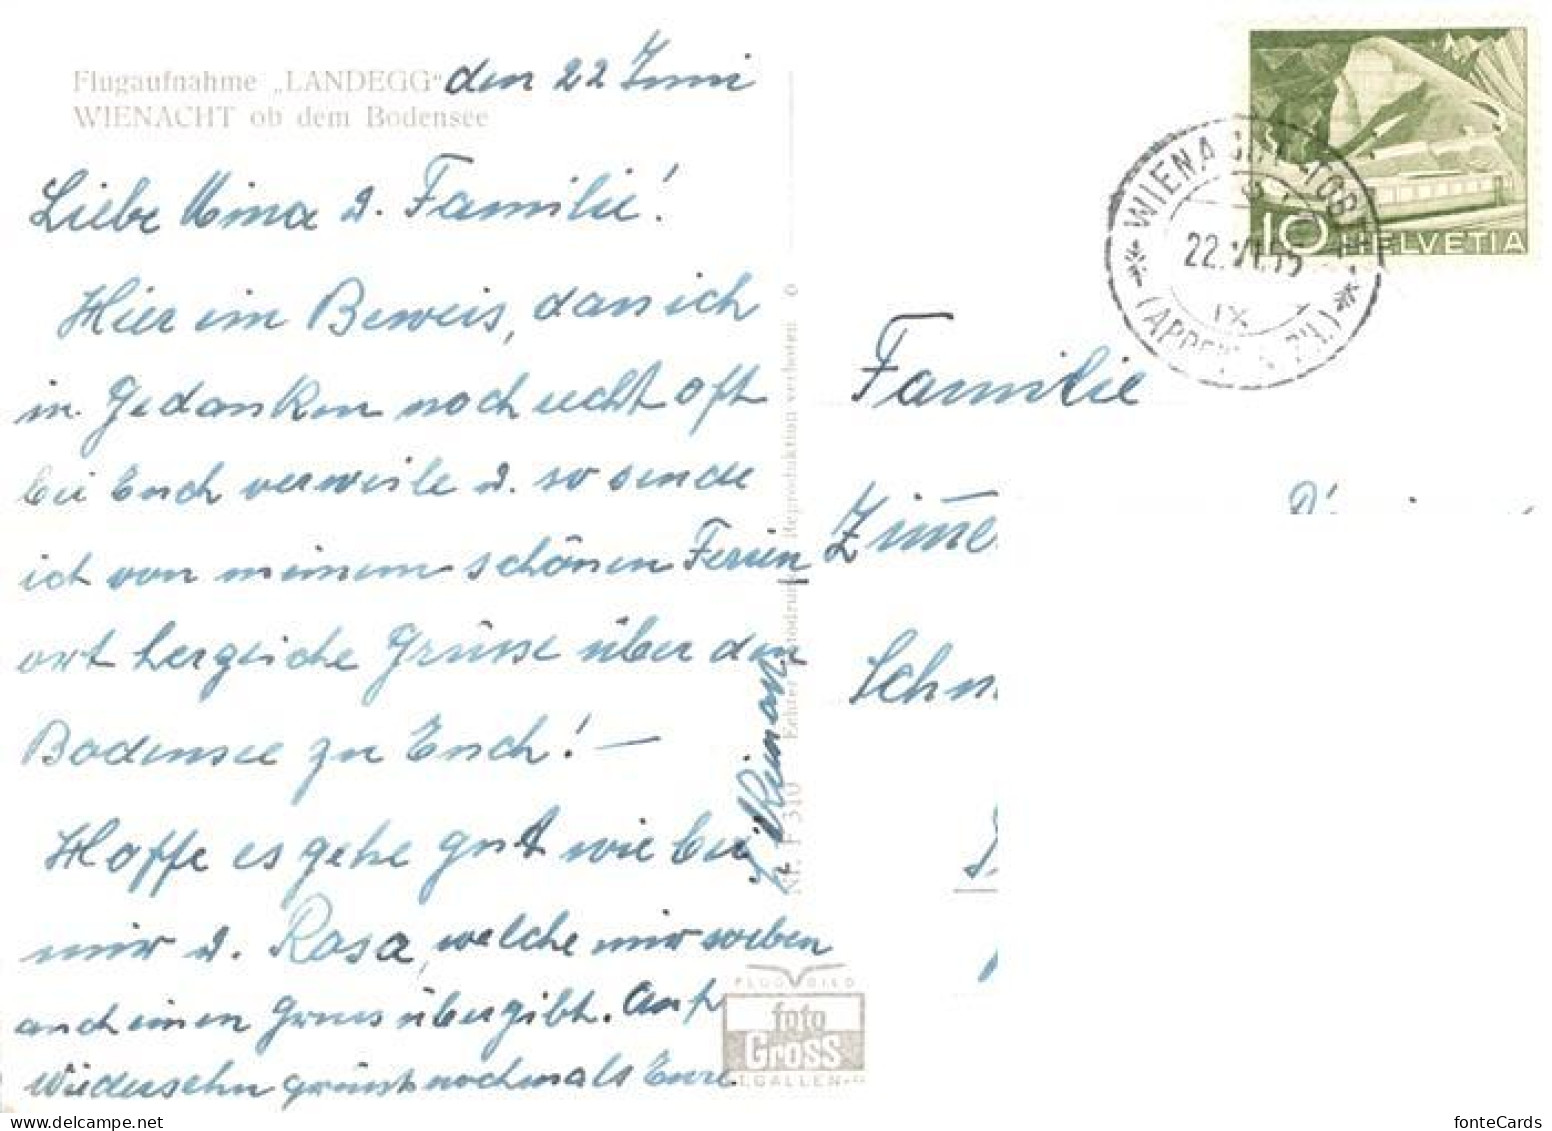 Flugaufnahme „LANDEGG“
WIENACHT ob dem Bodensee
den 22 Juni
Liebe Mina u. Familie!
Hier im Beweis, dass ich
in Gedanken noch recht oft
bei Euch verweile u. so sende
ich von meinem schönen Ferien
ort herzliche Grüsse über den
Bodensee zu Euch! —
Hoffe es gehe gut wie bei
mir u. Rosa, welche mir soeben
auch einen Gruss übergibt. Auf
Wiedersehn grüsst nochmals Eure
Nr. F 310 Echter Fotodruck Reproduktion verboten
FLUGBILD
foto
Gross
ST.GALLEN
HELVETIA
10
WIENACHT-TOBEL
22.VI.55
IX
(APPENZELL)
Familie
fonteCards